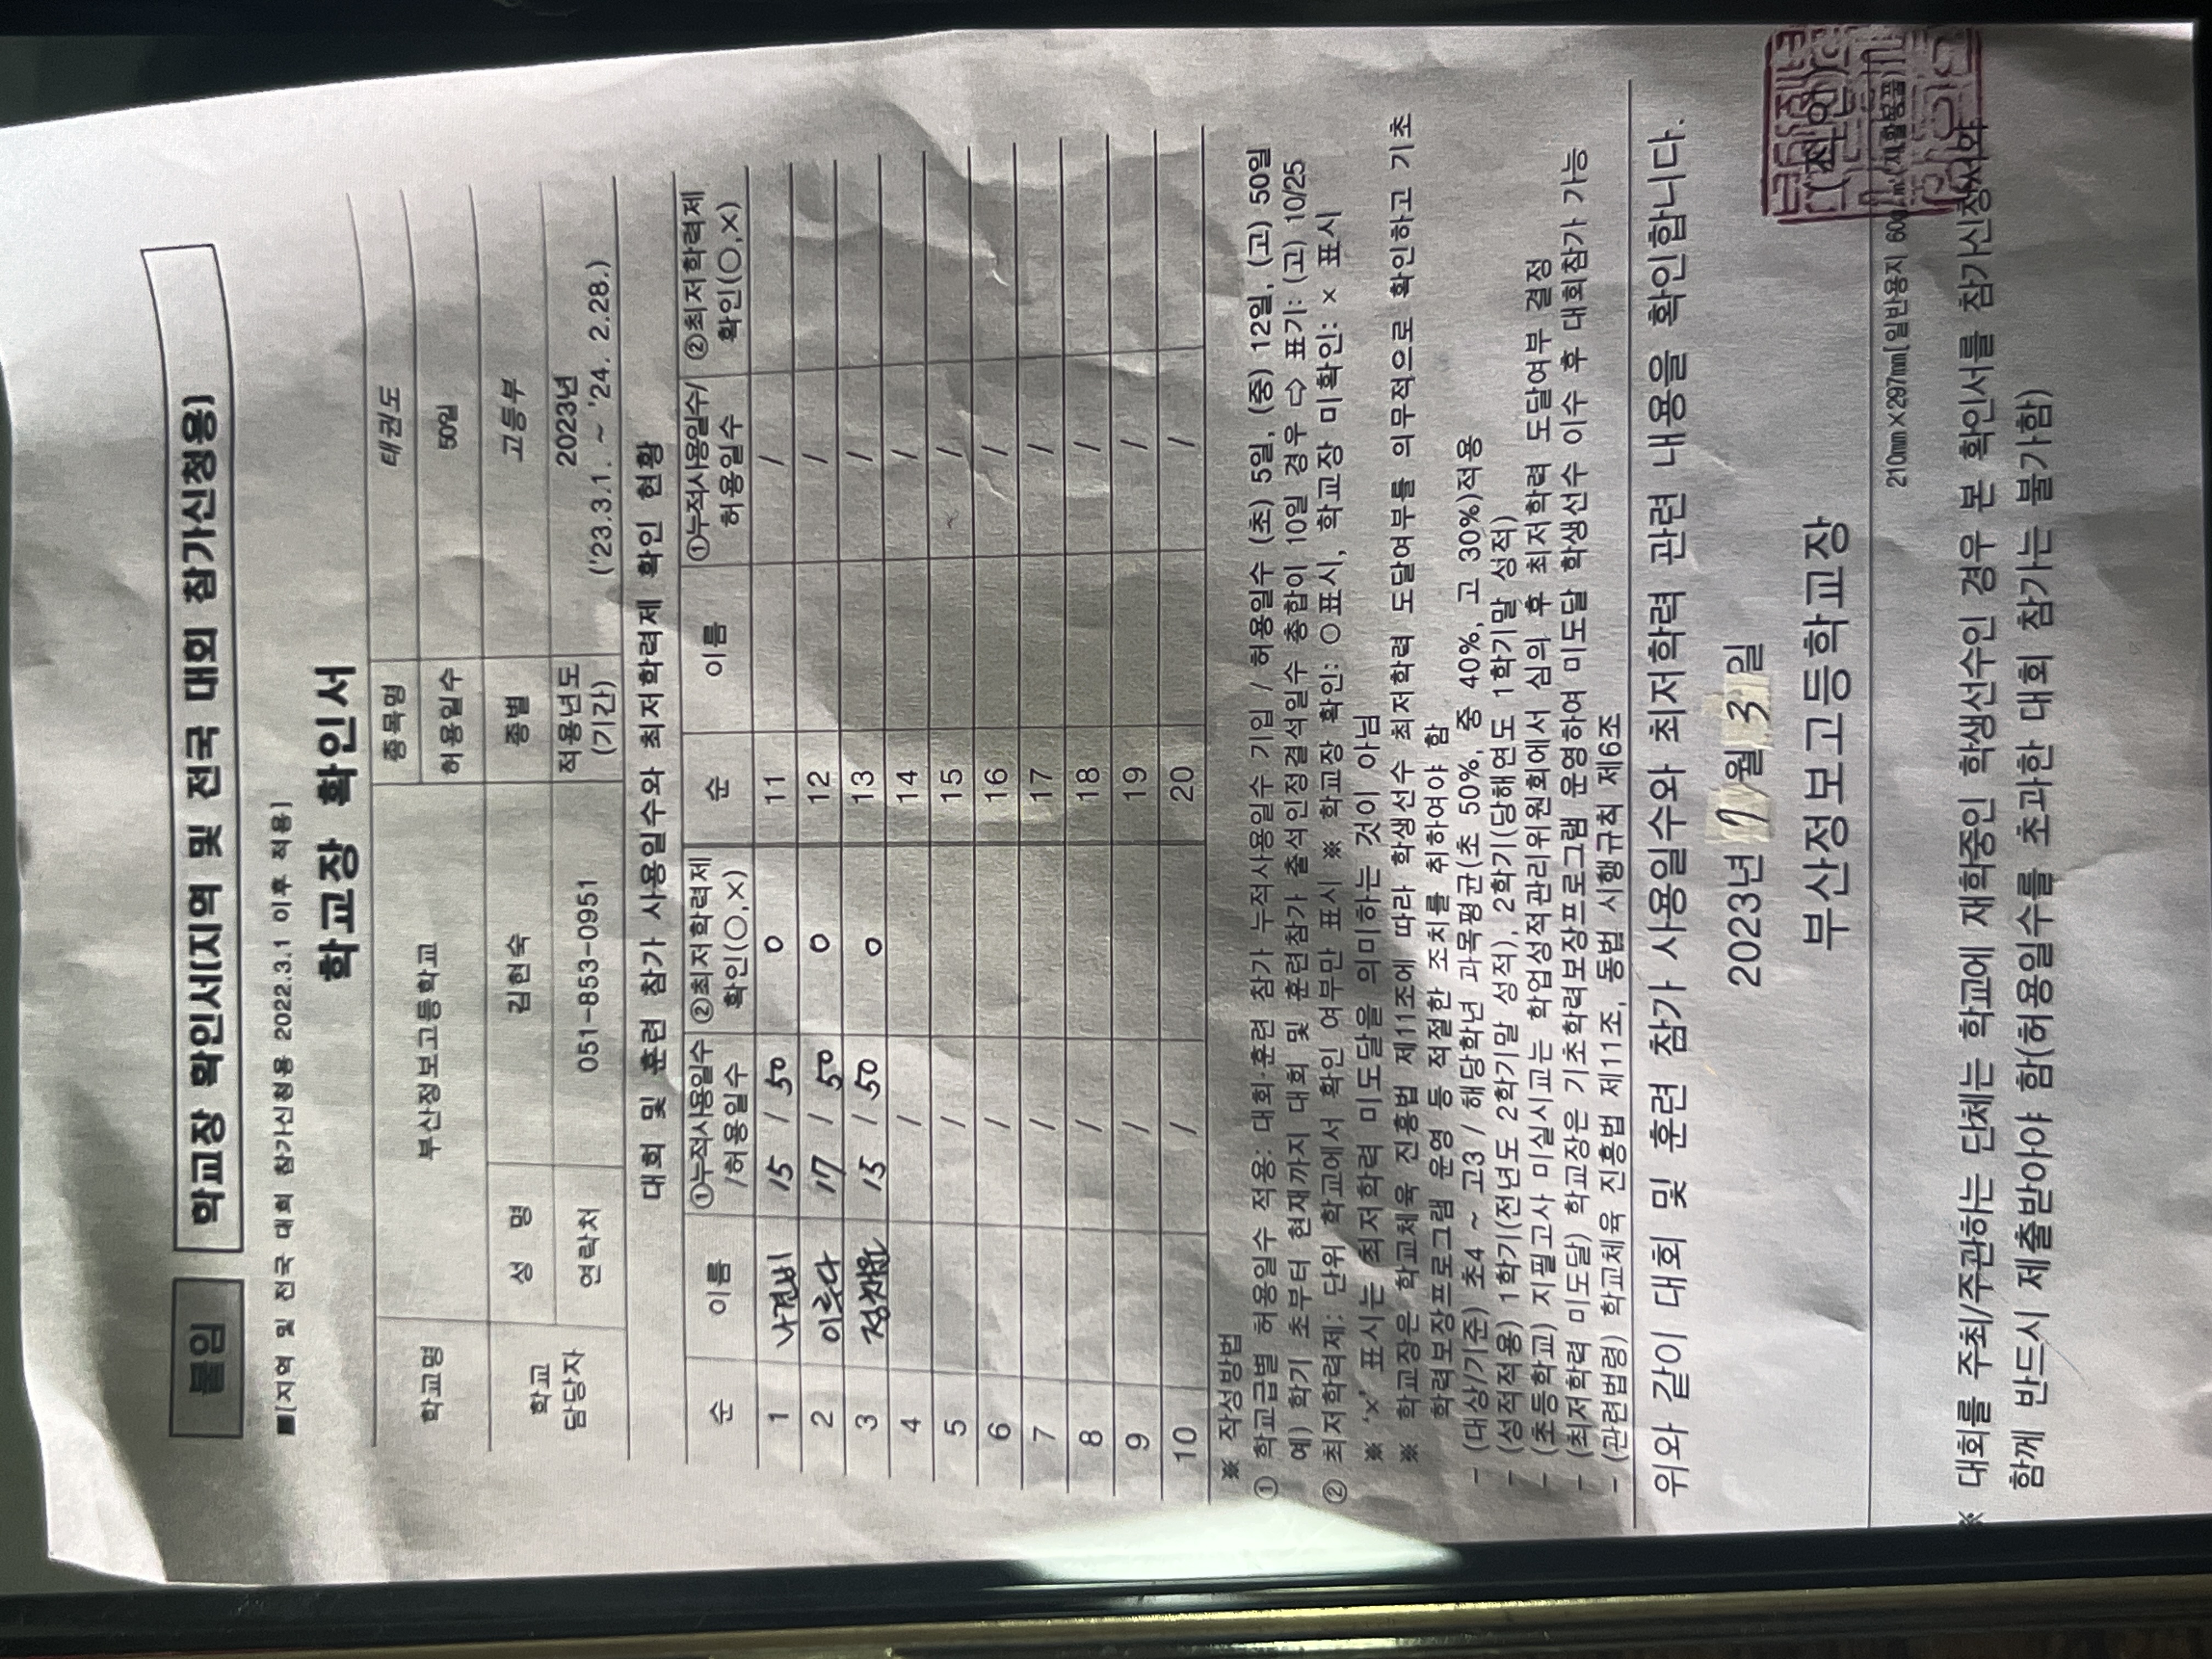 붙임 학교장 확인서(지역 및 전국 대회 참가신청용)
■[지역 및 전국 대회 참가신청용 2022.3.1 이후 적용]
학교장 확인서
학교명 부산정보고등학교 종목명 태권도
허용일수 50일
학교 담당자 성 명 김현숙 종별 고등부
연락처 051-853-0951 적용년도 (기간) 2023년 ('23.3.1. ~ '24. 2.28.)
대회 및 훈련 참가 사용일수와 최저학력제 확인 현황
순 이름 ①누적사용일수 /허용일수 ②최저학력제 확인(○,×) 순 이름 ①누적사용일수/ 허용일수 ②최저학력제 확인(○,×)
1 나경비 15 / 50 ○ 11 /
2 이르다 17 / 50 ○ 12 /
3 15 / 50 ○ 13 /
4 / 14 /
5 / 15 /
6 / 16 /
7 / 17 /
8 / 18 /
9 / 19 /
10 / 20 /
※ 작성방법
① 학교급별 허용일수 적용: 대회·훈련 참가 누적사용일수 기입 / 허용일수 (초) 5일, (중) 12일, (고) 50일
예) 학기 초부터 현재까지 대회 및 훈련참가 출석인정결석일수 총합이 10일 경우 ⇨ 표기: (고) 10/25
② 최저학력제: 단위 학교에서 확인 여부만 표시 ※ 학교장 확인: ○표시, 학교장 미확인: × 표시
※ '×' 표시는 최저학력 미도달을 의미하는 것이 아님
※ 학교장은 학교체육 진흥법 제11조에 따라 학생선수 최저학력 도달여부를 의무적으로 확인하고 기초
학력보장프로그램 운영 등 적절한 조치를 취하여야 함
- (대상/기준) 초4 ~ 고3 / 해당학년 과목평균(초 50%, 중 40%, 고 30%)적용
- (성적적용) 1학기(전년도 2학기말 성적), 2학기(당해연도 1학기말 성적)
- (초등학교) 지필고사 미실시교는 학업성적관리위원회에서 심의 후 최저학력 도달여부 결정
- (최저학력 미도달) 학교장은 기초학력보장프로그램 운영하여 미도달 학생선수 이수 후 대회참가 가능
- (관련법령) 학교체육 진흥법 제11조, 동법 시행규칙 제6조
위와 같이 대회 및 훈련 참가 사용일수와 최저학력 관련 내용을 확인합니다.
2023년 7월 3일
부산정보고등학교장 (직인)
210㎜×297㎜[일반용지 60g/㎡(재활용품)]
※ 대회를 주최/주관하는 단체는 학교에 재학중인 학생선수인 경우 본 확인서를 참가신청서와
함께 반드시 제출받아야 함(허용일수를 초과한 대회 참가는 불가함)